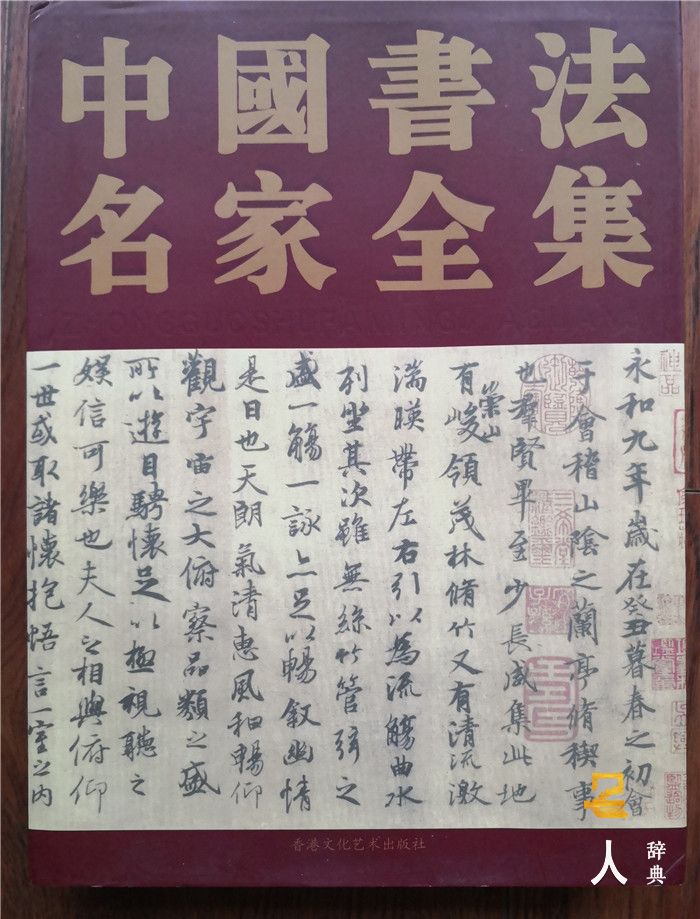 中國書法
名家全集
永和九年歲在癸丑暮春之初會
于會稽山陰之蘭亭脩稧事
也群賢畢至少長咸集此地
有崇山峻領茂林脩竹又有清流激
湍暎帶左右引以為流觴曲水
列坐其次雖無絲竹管弦之
盛一觴一詠亦足以暢敘幽情
是日也天朗氣清惠風和暢仰
觀宇宙之大俯察品類之盛
所以遊目騁懷足以極視聽之
娛信可樂也夫人之相與俯仰
一世或取諸懷抱悟言一室之內
神品
香港文化艺术出版社
人
辞典